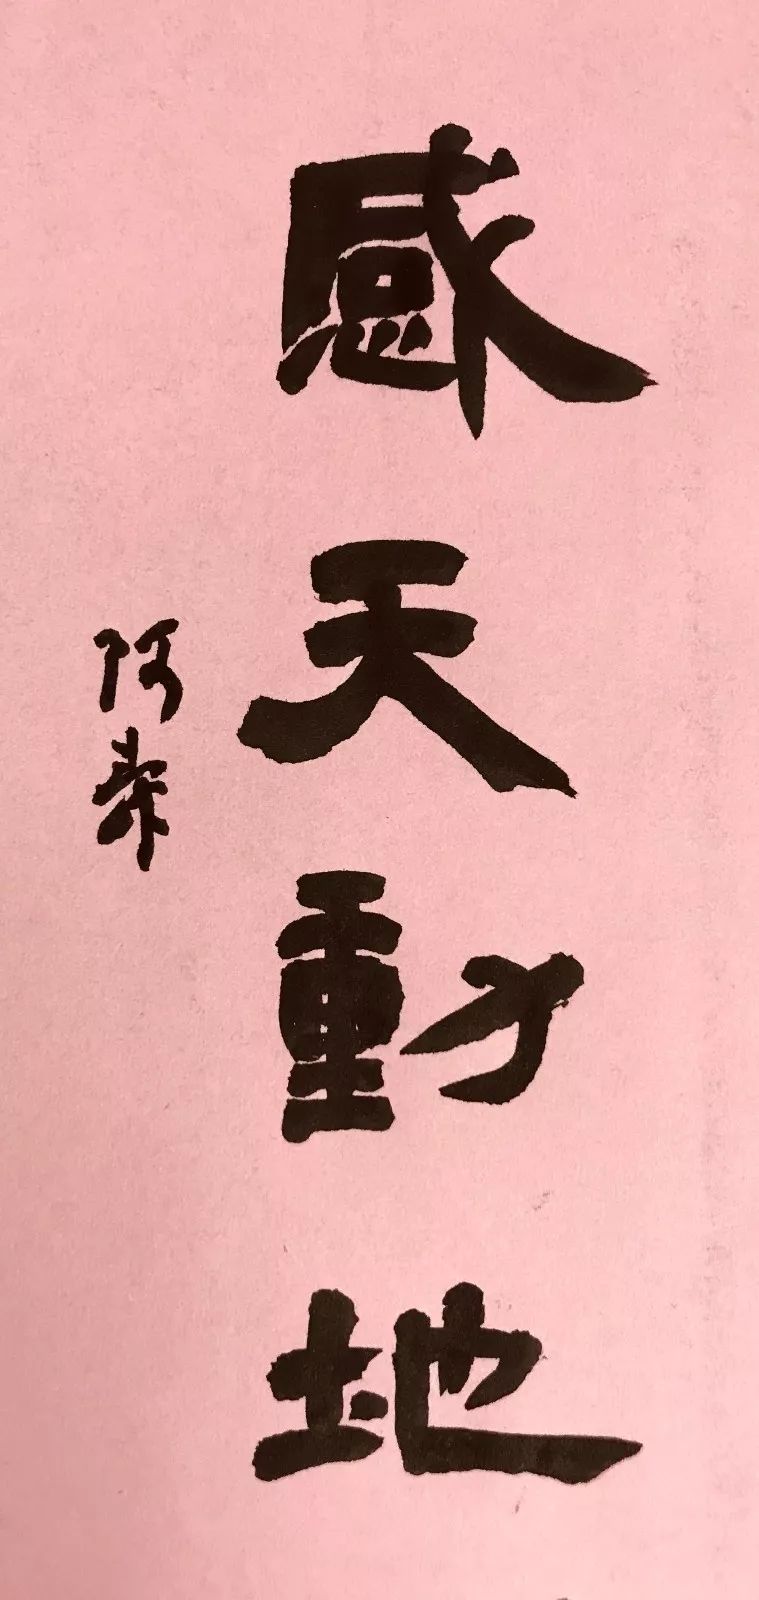 感天動地
阿